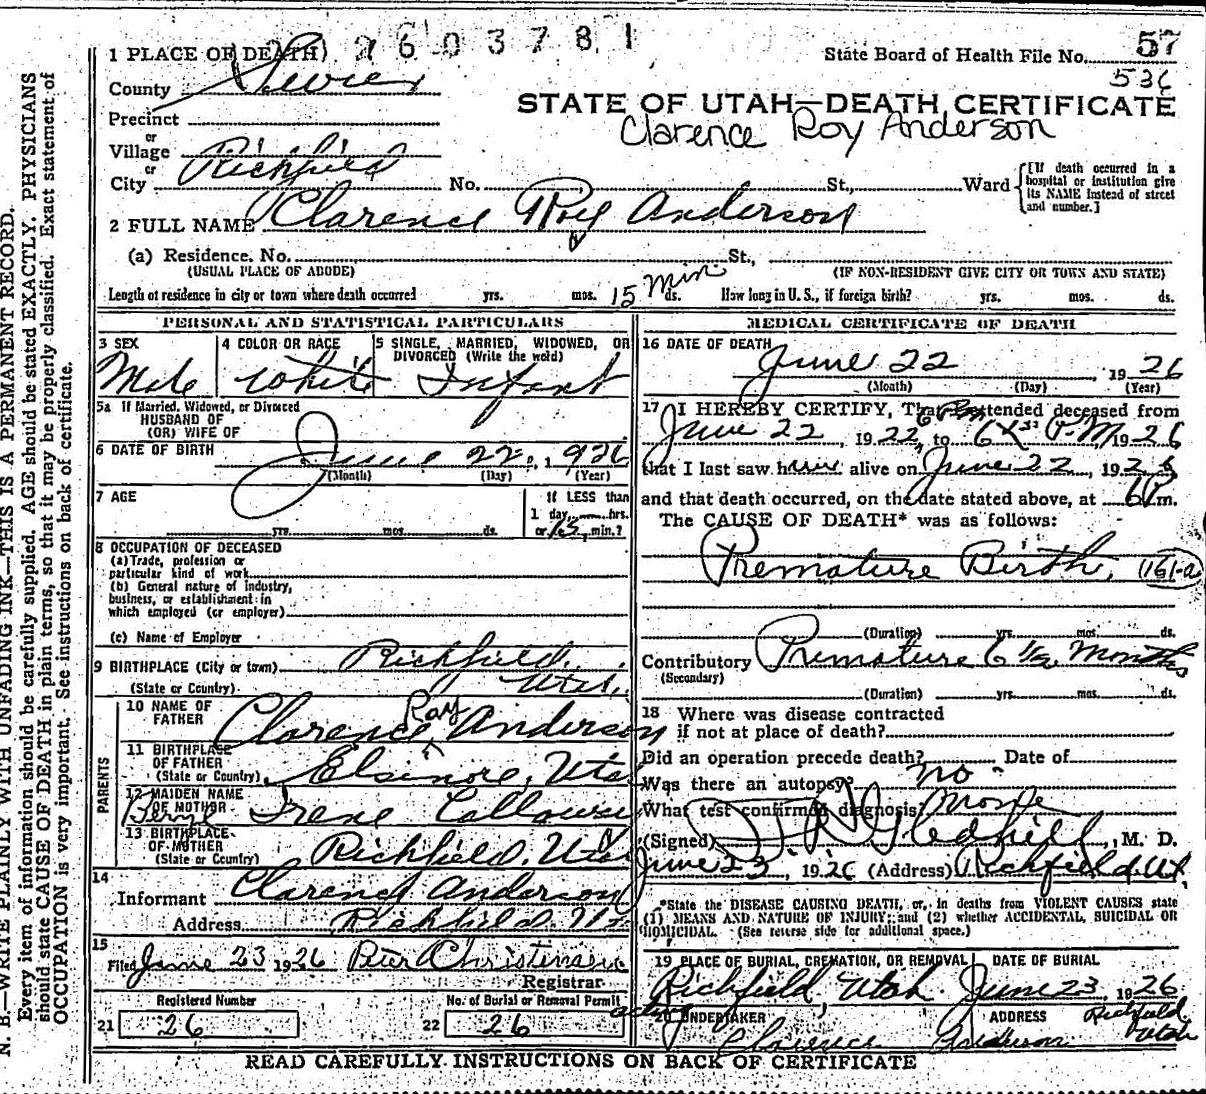 2603781
1 PLACE OF DEATH)
State Board of Health File No. 57
536
County Sevier
STATE OF UTAH—DEATH CERTIFICATE
Clarence Roy Anderson
Precinct
or
Village Richfield
or
City No. St., Ward
[If death occurred in a hospital or institution give its NAME instead of street and number.]
2 FULL NAME Clarence Roy Anderson
(a) Residence. No. St.,
(USUAL PLACE OF ABODE) (IF NON-RESIDENT GIVE CITY OR TOWN AND STATE)
Length of residence in city or town where death occurred yrs. mos. 15 Min ds. How long in U. S., if foreign birth? yrs. mos. ds.
PERSONAL AND STATISTICAL PARTICULARS
3 SEX 4 COLOR OR RACE 5 SINGLE, MARRIED, WIDOWED, OR
DIVORCED (Write the word)
Male White Infant
5a If Married, Widowed, or Divorced
HUSBAND OF
(OR) WIFE OF
6 DATE OF BIRTH June 22, 1926
(Month) (Day) (Year)
7 AGE If LESS than
1 day, hrs.
yrs. mos. ds. or 15 min.?
8 OCCUPATION OF DECEASED
(a) Trade, profession or
particular kind of work
(b) General nature of industry,
business, or establishment in
which employed (or employer)
(c) Name of Employer
9 BIRTHPLACE (City or town) Richfield,
(State or Country) Utah.
PARENTS
10 NAME OF
FATHER Clarence Roy Anderson
11 BIRTHPLACE
OF FATHER
(State or Country) Elsinore, Utah
12 MAIDEN NAME
OF MOTHER Irene
13 BIRTHPLACE
OF MOTHER
(State or Country) Richfield, Utah
14
Informant Clarence Anderson
Address Richfield Ut
15
Filed June 23 1926 Christensen
Registrar
Registered Number No. of Burial or Removal Permit
21 26 22 26
MEDICAL CERTIFICATE OF DEATH
16 DATE OF DEATH
June 22, 1926
(Month) (Day) (Year)
17 I HEREBY CERTIFY, That I attended deceased from
6 Pm
June 22, 1922, to P.M. 1926
that I last saw h alive on June 22, 192
and that death occurred, on the date stated above, at 6 P m.
The CAUSE OF DEATH* was as follows:
Premature Birth, 161-a
(Duration) yrs. mos. ds.
Contributory Premature 6 1/2 Months
(Secondary)
(Duration) yrs. mos. ds.
18 Where was disease contracted
if not at place of death?
Did an operation precede death? Date of
Was there an autopsy? no
What test confirmed diagnosis? None
(Signed) Gledhill, M. D.
June 23, 1926 (Address) Richfield Ut.
*State the DISEASE CAUSING DEATH, or, in deaths from VIOLENT CAUSES state
(1) MEANS AND NATURE OF INJURY; and (2) whether ACCIDENTAL, SUICIDAL OR
HOMICIDAL. (See reverse side for additional space.)
19 PLACE OF BURIAL, CREMATION, OR REMOVAL DATE OF BURIAL
Richfield, Utah. June 23, 1926
acting 20 UNDERTAKER ADDRESS Richfield
Clarence Anderson Utah
READ CAREFULLY INSTRUCTIONS ON BACK OF CERTIFICATE
N. B.—WRITE PLAINLY WITH UNFADING INK—THIS IS A PERMANENT RECORD.
Every item of information should be carefully supplied. AGE should be stated EXACTLY. PHYSICIANS
should state CAUSE OF DEATH in plain terms, so that it may be properly classified. Exact statement of
OCCUPATION is very important. See instructions on back of certificate.